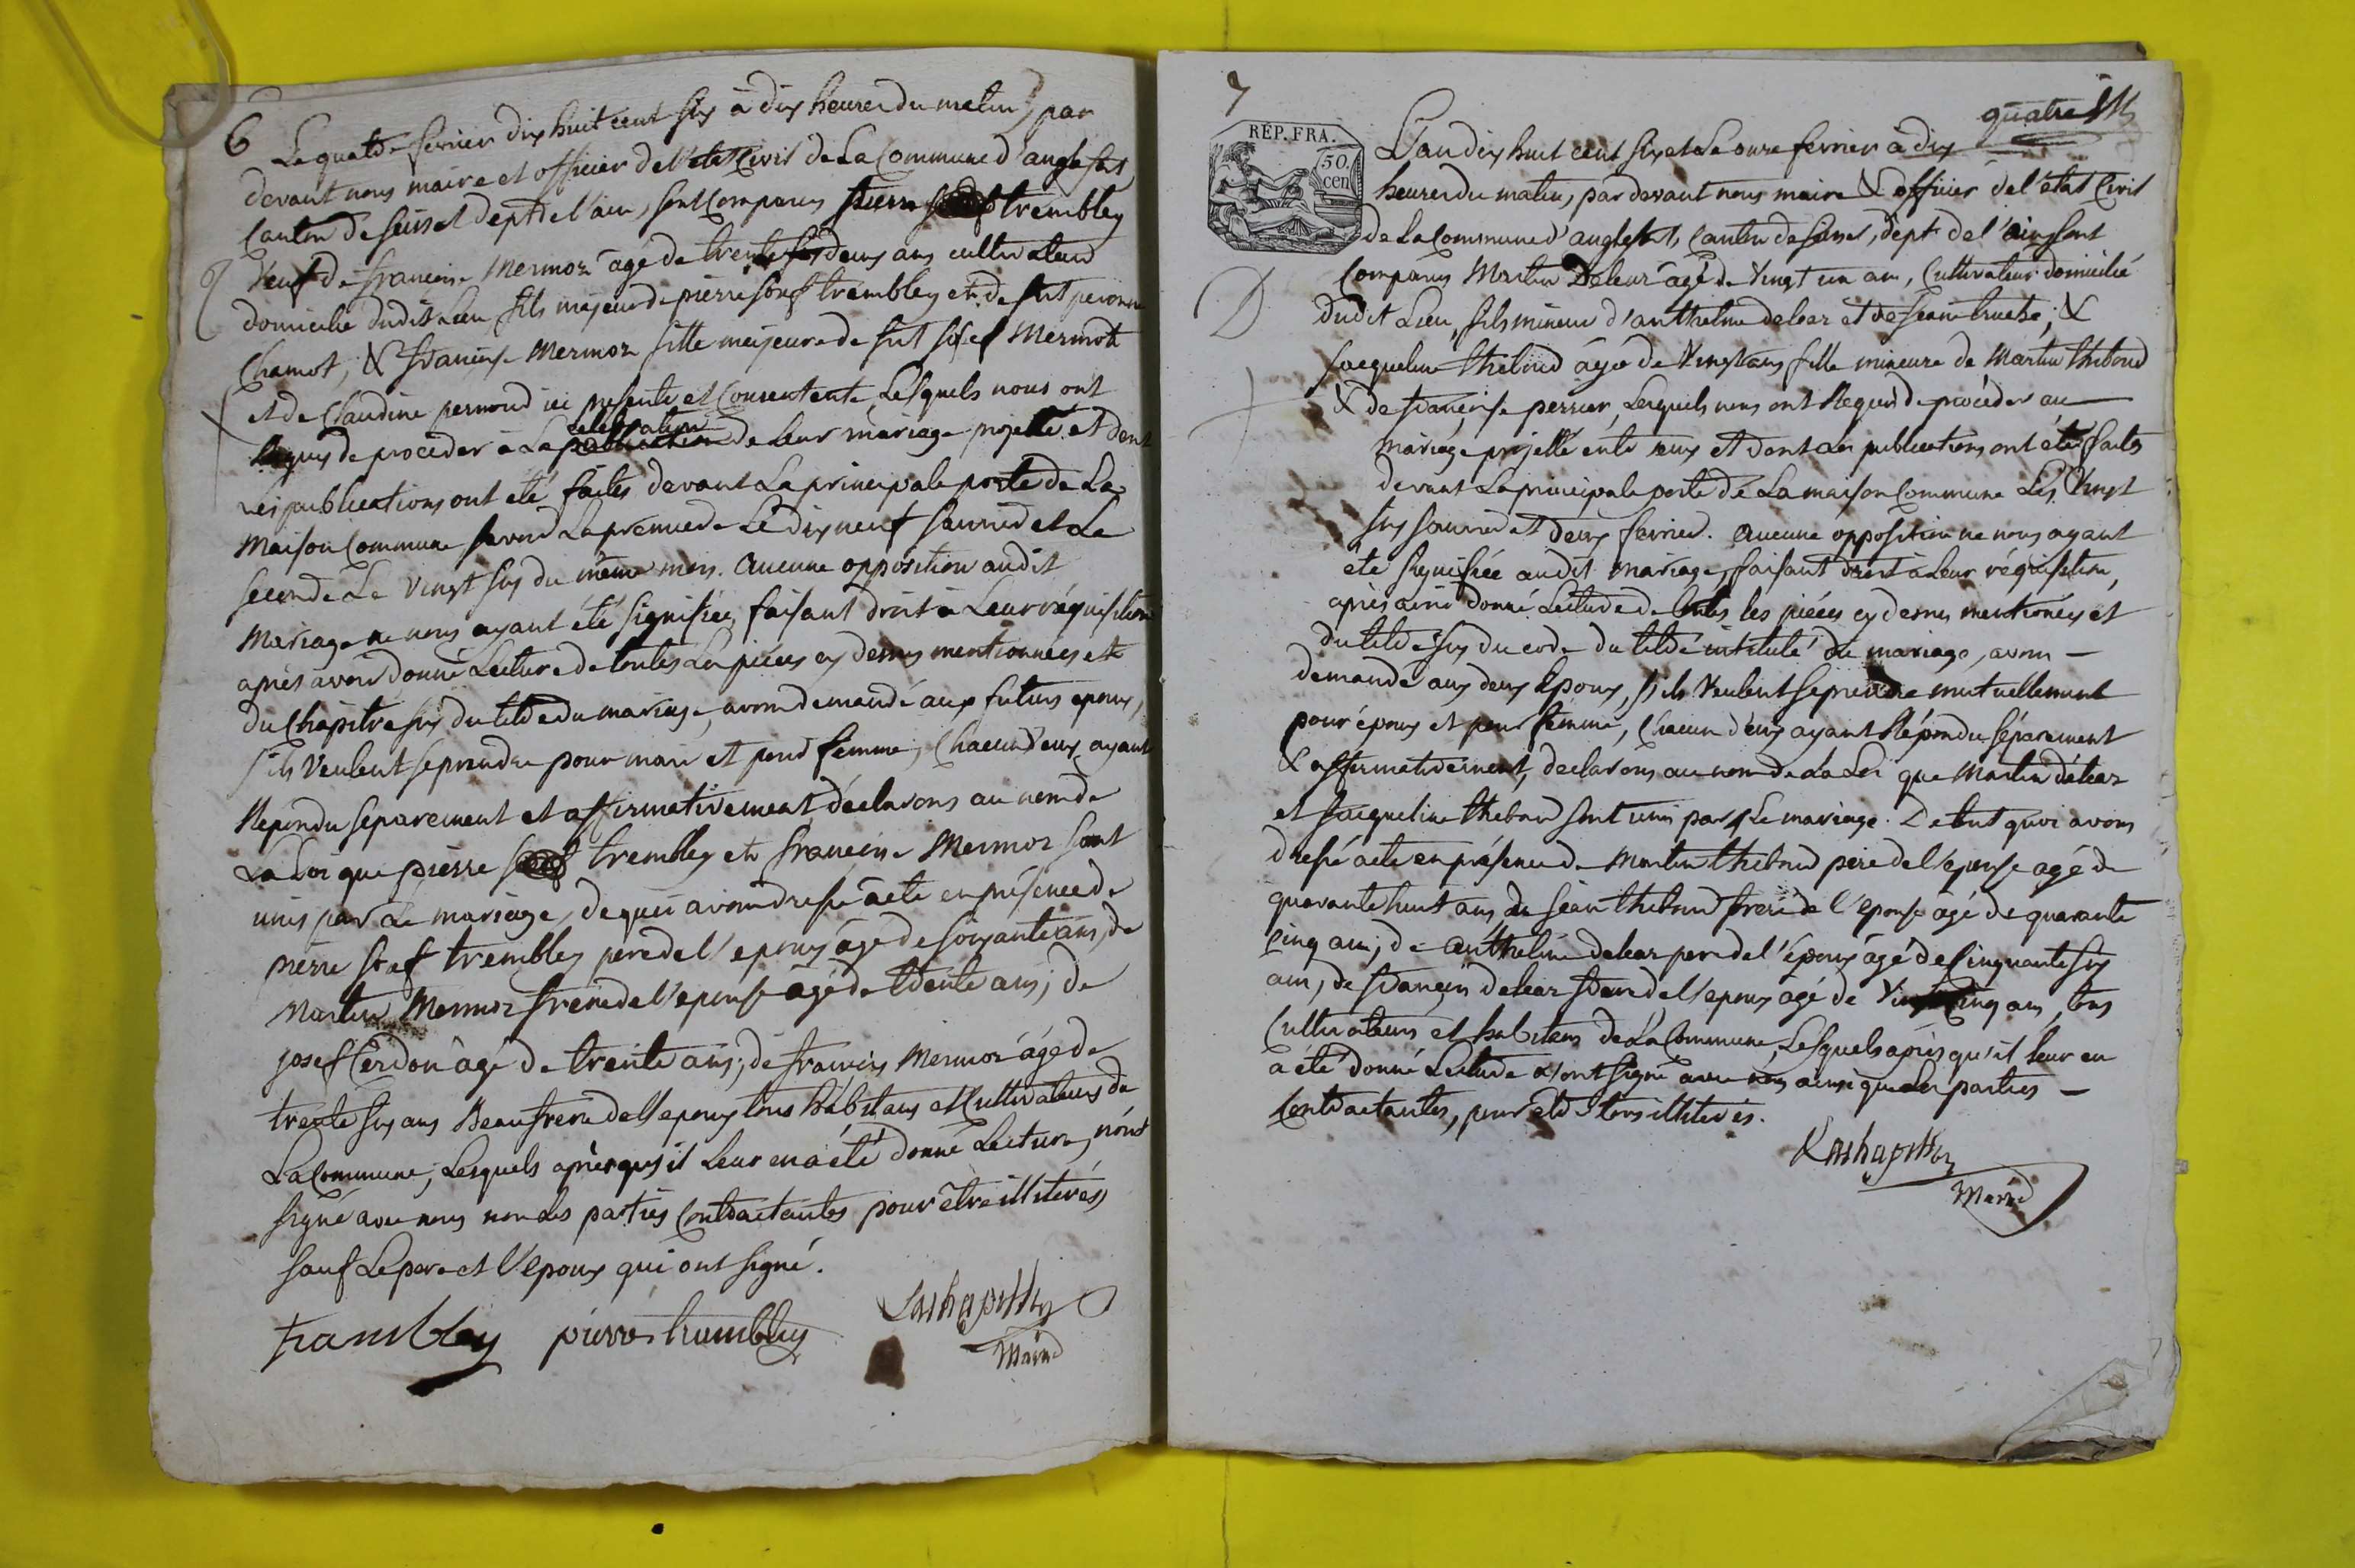 6
Le quatre fevrier dix huit cent six à dix heures du matin, par
devant nous maire et officier de l'etat Civil de La Commune d'anglefort
Canton de seissel dept de l'ain, sont Comparus pierre trembley
Veuf de francoise Mermoz agé de trente deux ans cultivateur
domicilié dudit Lieu fils majeur de pierre josef trembley et de fut peronne
Chamot, & francoise Mermoz fille majeure de fut josef Mermoz
et de Claudine pernoud ici presente et Consentente, Lesquels nous ont
requis de procéder à La celebration de leur mariage projetté et dont
les publications ont été faites devant La principale porte de La
Maison Commune, savoir La premiere Le dix neuf janvier et Le
seconde Le vingt six du même mois. Aucune opposition audit
Mariage ne nous ayant été signifiée, faisant droit à Leur réquisition
après avoir donné Lecture de toutes Les pièces cy dessus mentionnées et
du Chapitre six du titre du mariage, avons demandé aux futurs epoux,
s'ils veulent se prendre pour mari et pour femme, Chacun d'eux ayant
Répondu séparement et affirmativement, déclarons au nom de
La Loi que pierre trembley et francoise Mermoz sont
unis par Le mariage, de quoi avons dressé acte en présence de
pierre josef trembley pere de l'epoux âgé de soixante ans, de
Martin Mermoz frere de l'epouse âgé de trente ans; de
josef Cerdon âgé de trente ans; de francois Mermoz âgé de
trente six ans Beaufrere de l'epoux tous habitans et Cultivateurs de
La Commune, Lesquels après qu'il Leur en a été donné Lecture, n'ont
signé avec nous non Les parties Contractantes pour être illiterés,
sauf Le pere et l'epoux qui ont signé.
trambley pierre trembley
Maire
7
quatre
RÉP. FRA.
50.
cen
L'an dix huit cent six et Le onze fevrier à dix
heures du matin, par devant nous maire & officier de l'état Civil
de La Commune d'anglefort, Canton de seissel, dept de l'ain, sont
Comparus Martin Deleaz âgé de vingt un ans, Cultivateur domicilié
dudit Lieu, fils mineur d'anthelme deleaz et de jeanne truche, &
jacqueline thiboud âgée de vingt ans fille mineure de Martin thiboud
& de francoise perrier, Lesquels nous ont Requis de procéder au
mariage projetté entre eux et dont Les publications ont été faites
devant La principale porte de La maison Commune Les vingt
six janvier et deux fevrier. Aucune opposition ne nous ayant
été signifiée audit mariage, faisant droit à Leur réquisition,
après avoir donné Lecture de toutes les pièces cy dessus mentionnées et
du titre six du code du titre intitulé du mariage, avons —
demandé aux deux Epoux, s'ils Veulent se prendre mutuellement
pour époux et pour femme, Chacun d'eux ayant Répondu séparement
& affirmativement, declarons au nom de La Loi que Martin déleaz
et jacqueline thiboud sont unis par Le mariage. De tout quoi avons
dressé acte en présence de Martin thiboud pere de l'epouse agé de
quarante huit ans, de jean thiboud frere de l'epouse agé de quarante
cinq ans, de Anthelme deleaz pere de l'époux âgé de Cinquante six
ans, de francois deleaz frere de l'epoux agé de vingt cinq ans, tous
Cultivateurs et habitans de La Commune, Lesquels après qu'il leur en
a été donné Lecture n'ont signé avec nous ainsi que Les parties —
Contractantes, pour etre tous illiterés.
Maire